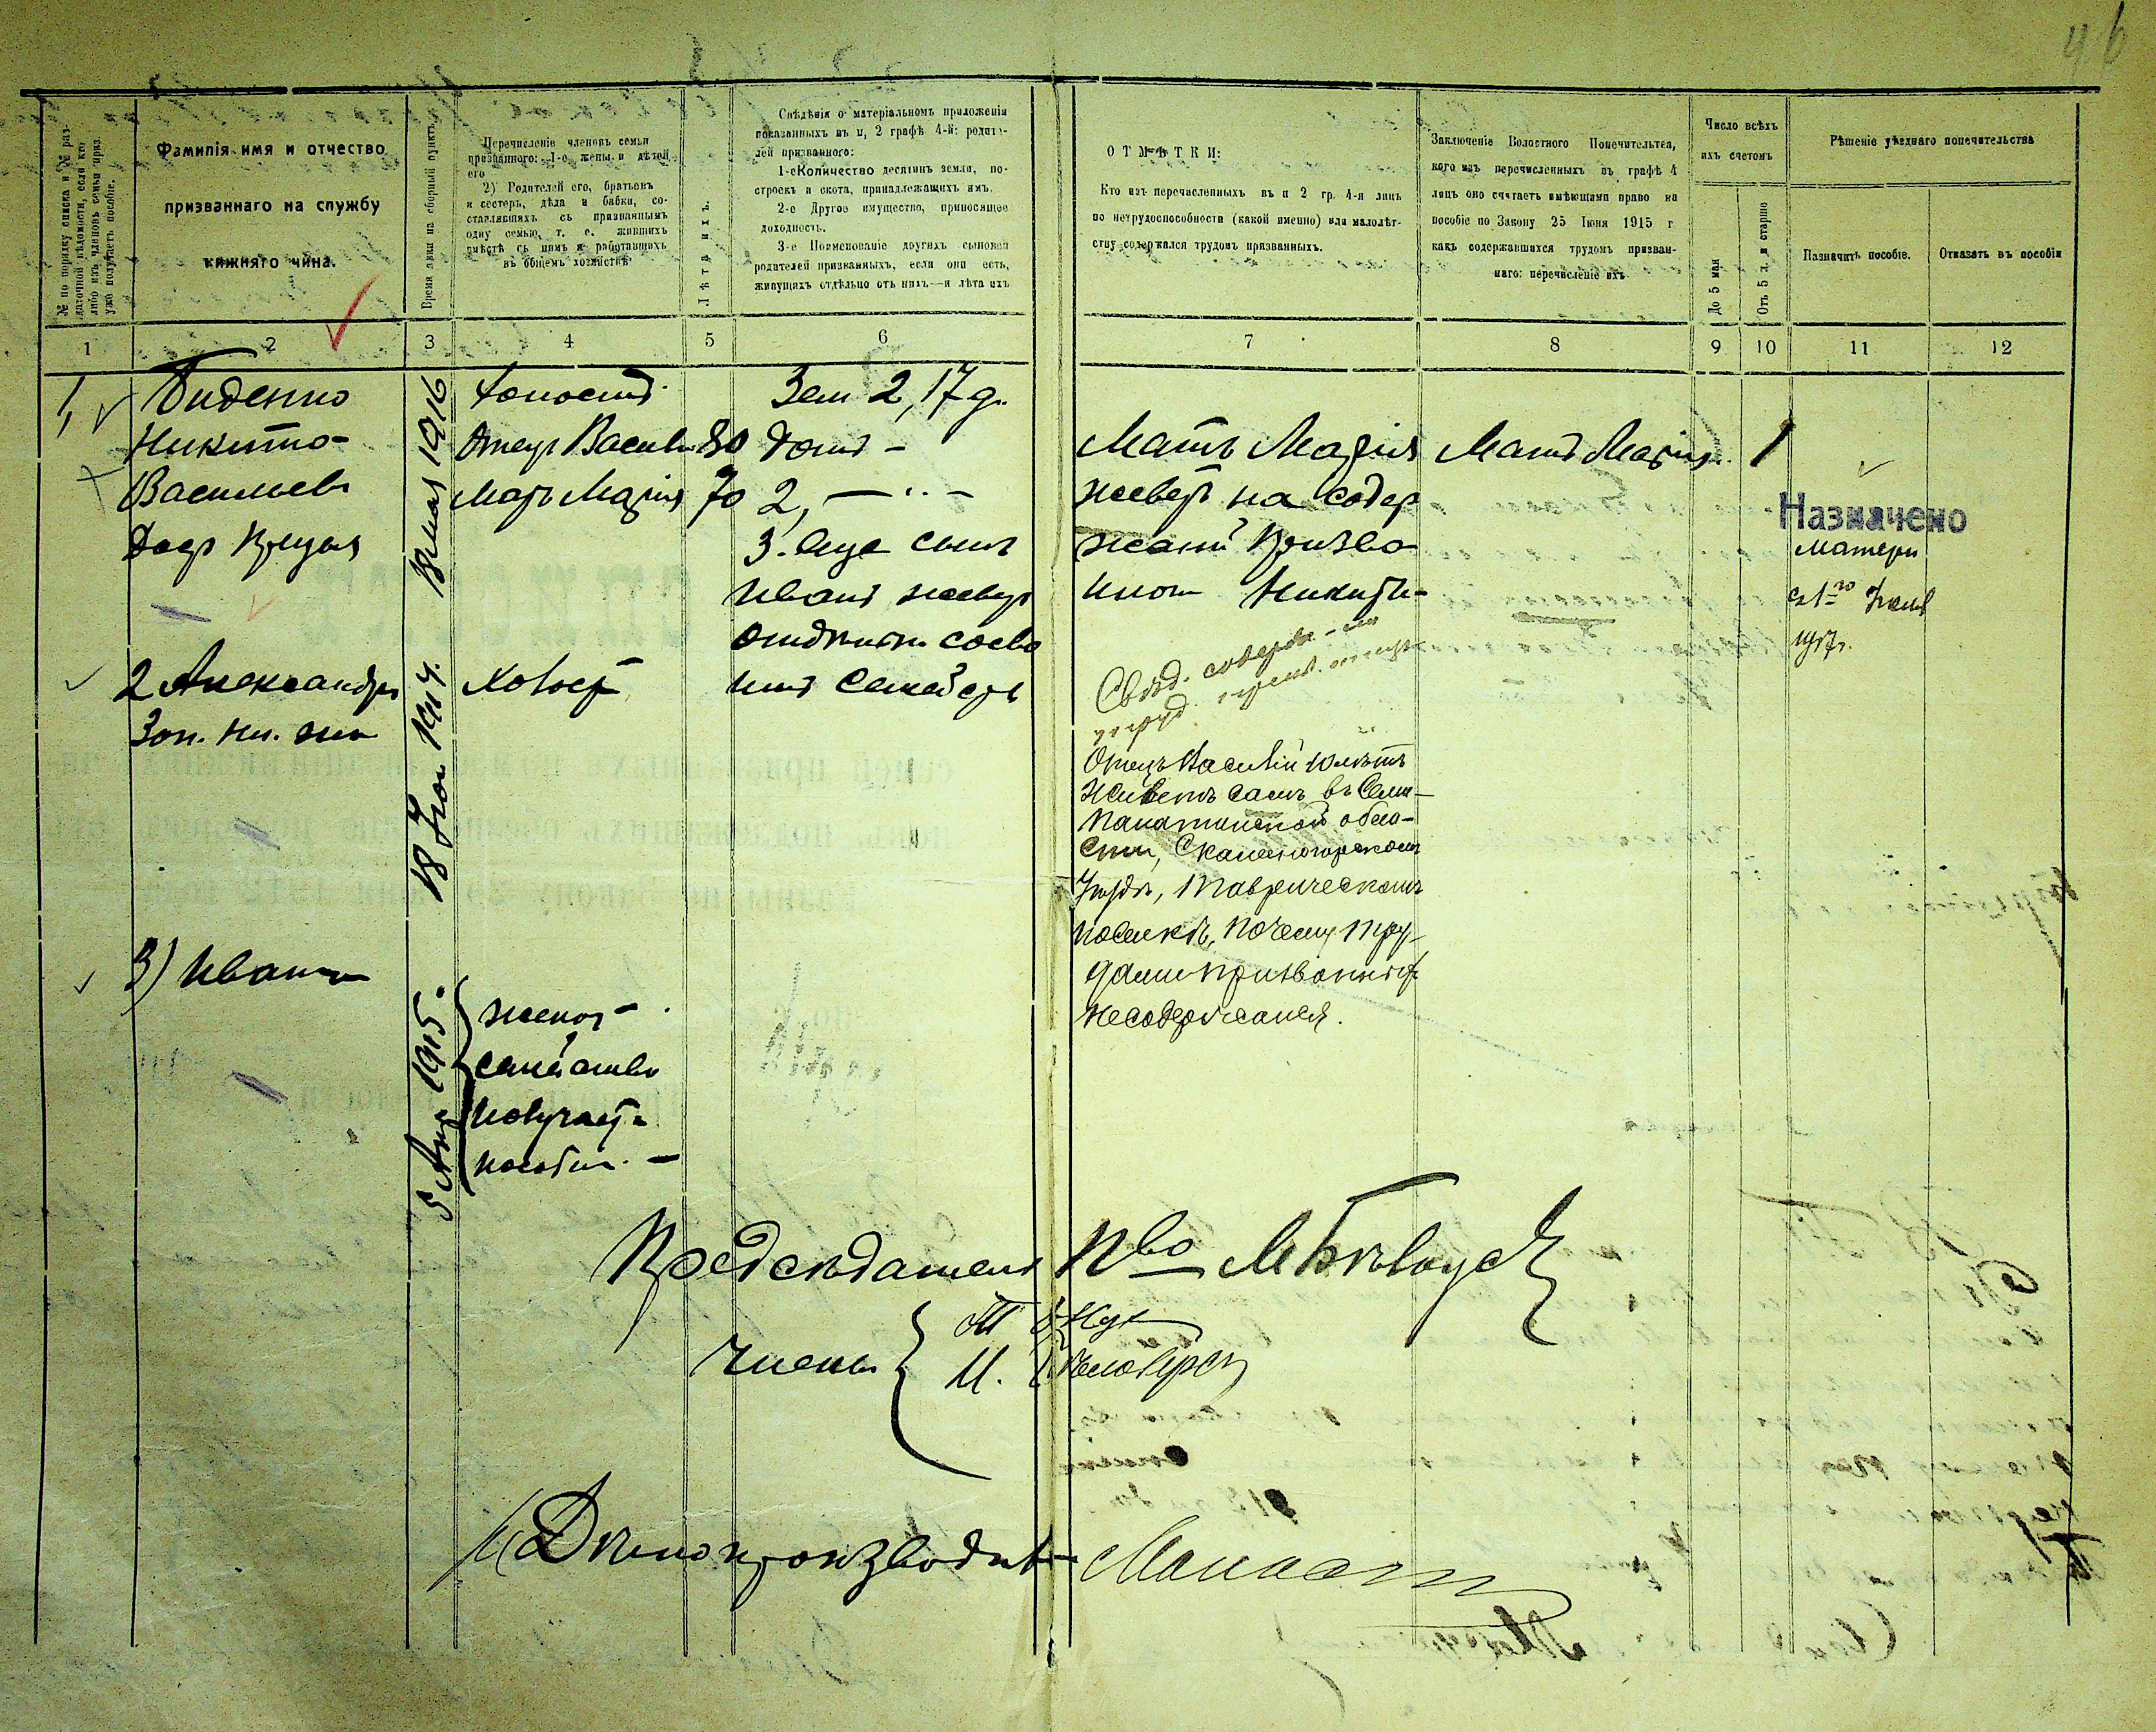 46
№ по порядку списка и № раз-
даточной вѣдомости, если кто
либо изъ членовъ семьи приз.
уже получаетъ пособіе.
Фамилія имя и отчество
призваннаго на службу
нижняго чина.
Время явки на сборный пунктъ
Перечисленіе членовъ семьи
призваннаго: 1-е жены и дѣтей
его
2) Родителей его, братьевъ
и сестеръ, дѣда и бабки, со-
ставлявшихъ съ призваннымъ
одну семью, т. е. жившихъ
вмѣстѣ съ нимъ и работавшихъ
въ общемъ хозяйствѣ
Лѣта ихъ.
Свѣдѣнія о матеріальномъ приложеніи
показанныхъ въ п, 2 графѣ 4-й: родите-
лей призваннаго:
1-еКоличество десятинъ земли, по-
строекъ и скота, принадлежащихъ имъ.
2-е Другое имущество, приносящее
доходность.
3-е Поименованіе другихъ сыновей
родителей призванныхъ, если они есть,
живущихъ отдѣльно отъ нихъ—и лѣта ихъ
ОТМѢТКИ:
Кто изъ перечисленныхъ въ п 2 гр. 4-я лицъ
по нетрудоспособности (какой именно) или малолѣт-
ству содержался трудомъ призванныхъ.
Заключеніе Волостного Попечительтва,
кого изъ перечисленныхъ въ графѣ 4
лицъ оно считаетъ имѣющими право на
пособіе по Закону 25 Іюня 1915 г
какъ содержавшихся трудомъ призван-
наго: перечисленіе ихъ
Число всѣхъ
ихъ счетомъ
До 5 мая
Отъ 5 л. и старше
Рѣшеніе уѣзднаго попечительства
Назначить пособіе.
Отказать въ пособіи
1 2 3 4 5 6 7 8 9 10 11 12
1, Биденко
Никита
Васильевъ
1916
Холостъ
Отецъ Василій 80
Мать Марія 70
Зем 2,17 д.
Домъ -
2, — ·· -
3. Еще сынъ
Иванъ живетъ
отдѣльно
семейств
Мать Марія
живетъ на содер
жаніи Призва
Никиты
Мать Марія
1
Назначено
матери
съ 1го
1917г.
2 Александръ
Зап. ни. чин
18 Іюл 1914.
Холост
Отецъ Василій 10 лѣтъ
Живетъ самъ въ Семи-
палатинской обла-
сти, Каменогорскомъ
Уѣздѣ, Таврическомъ
поселкѣ, почему тру-
дами призваннаго
не содержался.
3) Иванъ
5 1915.
жена -
семейство
получаетъ
пособіе. —
Предсѣдатель П-во
Члены
И.
Дѣлопроизводит